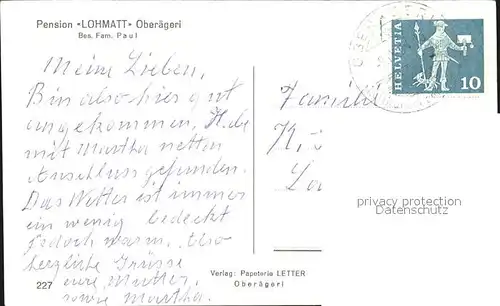 Pension «LOHMATT» Oberägeri
Bes. Fam. Paul
Meine Lieben,
Bin also hier gut
angekommen, Habe
mit Martha netten
Anschluss gefunden.
Das Wetter ist immer
ein wenig bedeckt
jedoch warm. Also
herzliche Grüsse
eure Mutter,
sowie Martha.
227
Verlag: Papeterie LETTER
Oberägeri
HELVETIA
10
Famili
privacy protection
Datenschutz